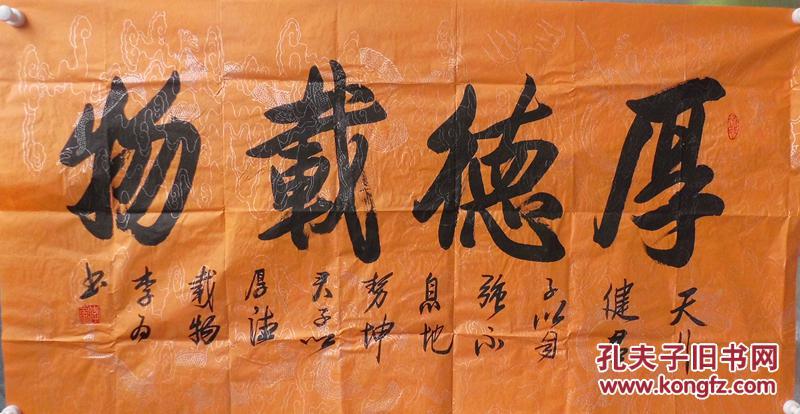 厚德載物
天行
健君
子以自
強不
息地
势坤
君子以
厚德
載物
李为
书
孔夫子旧书网
www.kongfz.com